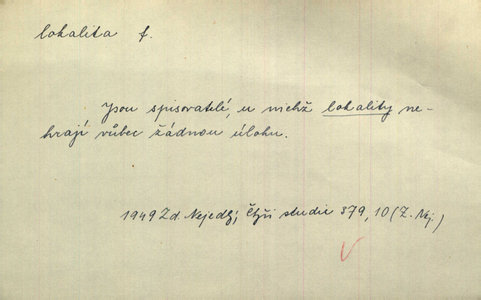 lokalita f.
Jsou spisovatelé, u nichž lokality ne-
hrají vůbec žádnou úlohu.
1949 Zd. Nejedlý, Čtyři studie 379, 10 (Z. Nej.)